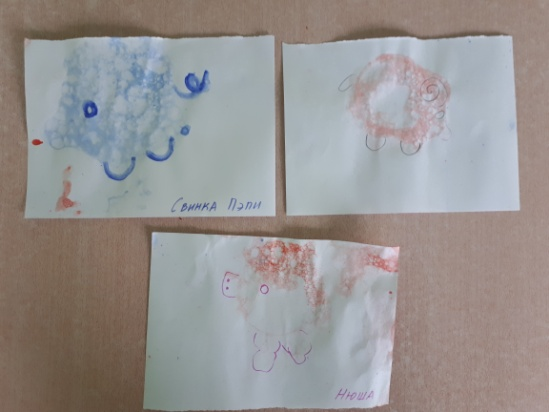 Свинка Пэпи
Нюша